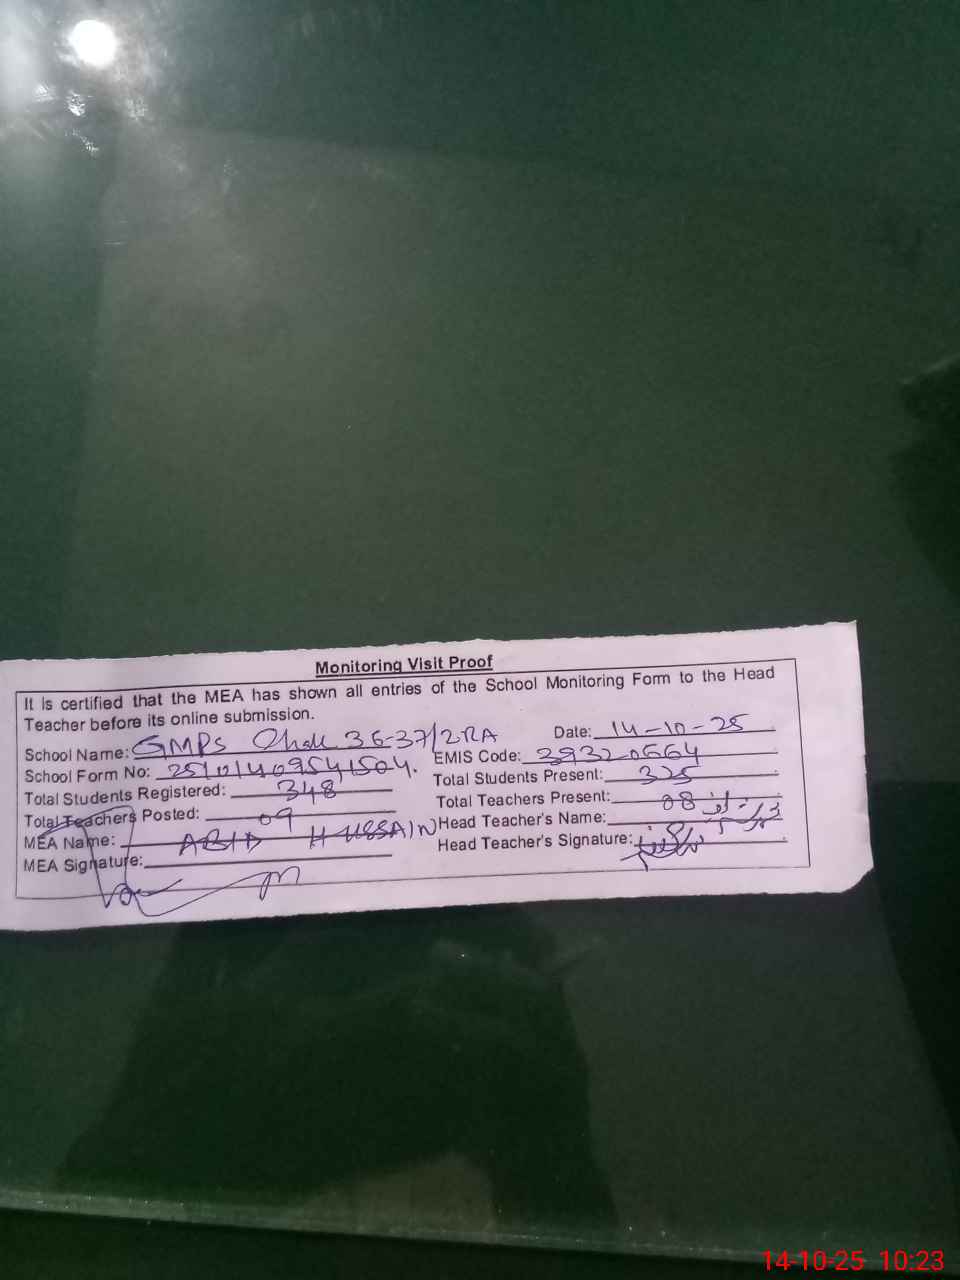 Monitoring Visit Proof
It is certified that the MEA has shown all entries of the School Monitoring Form to the Head
Teacher before its online submission.
School Name: GMPS Chak 36-37/2RA Date: 14-10-25
School Form No: EMIS Code: 39320664
Total Students Registered: 348 Total Students Present: 325
Total Teachers Posted: 09 Total Teachers Present: 08
MEA Name: ABID HUSSAIN Head Teacher's Name:
MEA Signature: Head Teacher's Signature:
14-10-25 10:23